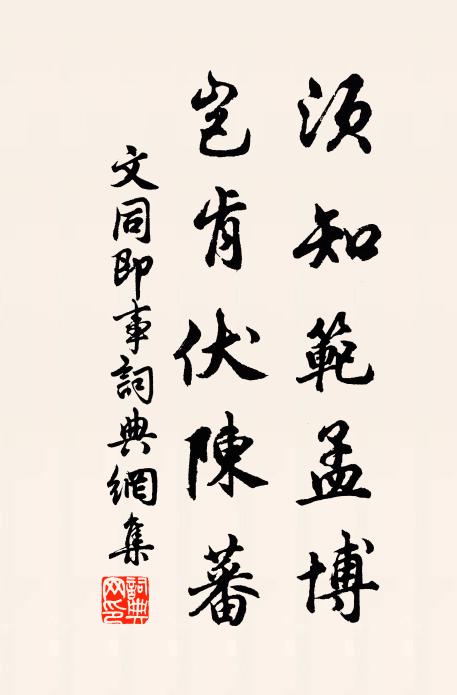 須知範孟博
豈肯伏陳蕃
文同即事詞典網集
詞典網印